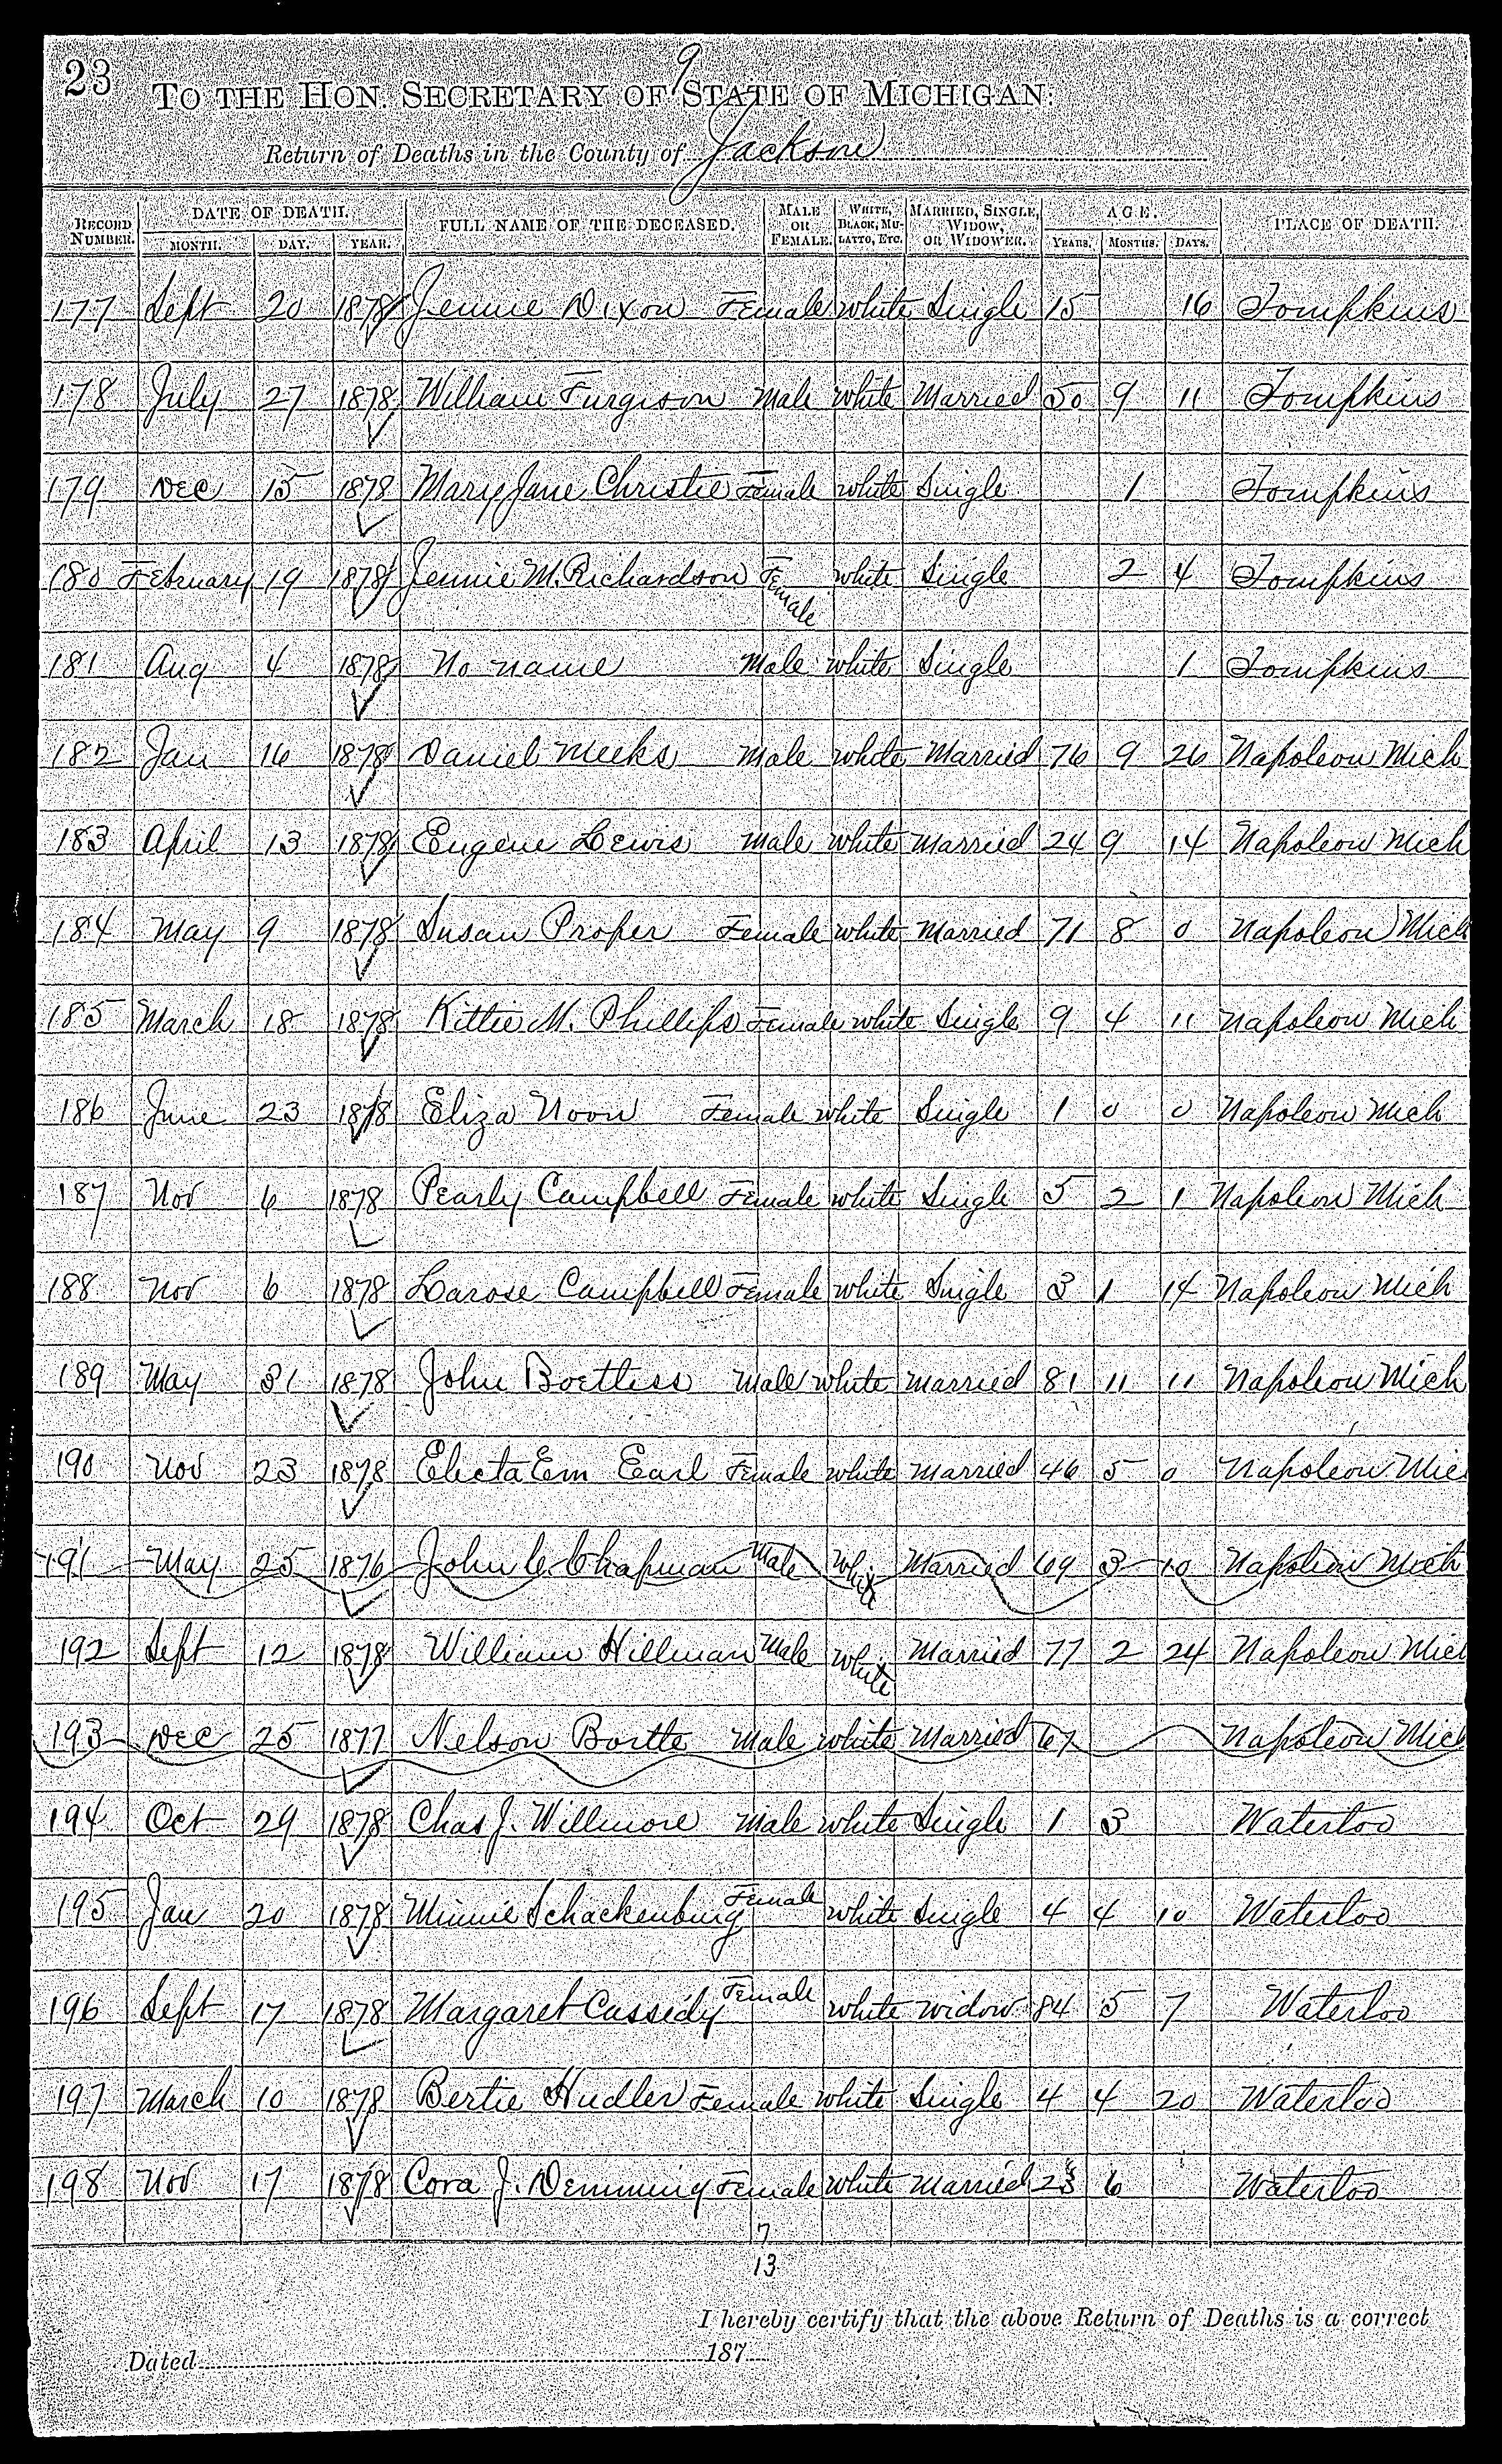 23
9
TO THE HON. SECRETARY OF STATE OF MICHIGAN:
Return of Deaths in the County of Jackson
RECORD NUMBER. DATE OF DEATH. MONTH. DAY. YEAR. FULL NAME OF THE DECEASED. MALE OR FEMALE. WHITE, BLACK, MULATTO, ETC. MARRIED, SINGLE, WIDOW, OR WIDOWER. AGE. YEARS. MONTHS. DAYS. PLACE OF DEATH.
177 Sept 20 1878 Jennie Dixon Female white Single 15 16 Tompkins
178 July 27 1878 William Furgison Male white Married 50 9 11 Tompkins
179 Dec 15 1878 Mary Jane Christie Female white Single 1 Tompkins
180 February 19 1878 Jennie M. Richardson Female white Single 2 4 Tompkins
181 Aug 4 1878 No name Male white Single 1 Tompkins
182 Jan 16 1878 Daniel Meeks Male white Married 76 9 26 Napoleon Mich
183 April 13 1878 Eugene Lewis Male white Married 24 9 14 Napoleon Mich
184 May 9 1878 Susan Proper Female white Married 71 8 0 Napoleon Mich
185 March 18 1878 Kittie M. Phillips Female white Single 9 4 11 Napoleon Mich
186 June 23 1878 Eliza Noon Female white Single 1 0 0 Napoleon Mich
187 Nov 6 1878 Pearly Campbell Female white Single 5 2 1 Napoleon Mich
188 Nov 6 1878 Larose Campbell Female white Single 3 1 14 Napoleon Mich
189 May 31 1878 John Boettiss Male white Married 81 11 11 Napoleon Mich
190 Nov 23 1878 Electa Em Earl Female white Married 46 5 0 Napoleon Mic
191 May 25 1876 John C. Chapman Male White Married 69 3 10 Napoleon Mich
192 Sept 12 1878 William Hillman Male White Married 77 2 24 Napoleon Mich
193 Dec 25 1877 Nelson Bortte Male white Married 67 Napoleon Mich
194 Oct 29 1878 Chas J. Willmore Male white Single 1 3 Waterloo
195 Jan 20 1878 Minnie Schackenburg Female white Single 4 4 10 Waterloo
196 Sept 17 1878 Margaret Cassidy Female white widow 84 5 7 Waterloo
197 March 10 1878 Bertie Hudler Female white Single 4 4 20 Waterloo
198 Nov 17 1878 Cora J. Demming Female white Married 23 6 Waterloo
7
13
I hereby certify that the above Return of Deaths is a correct
Dated 187